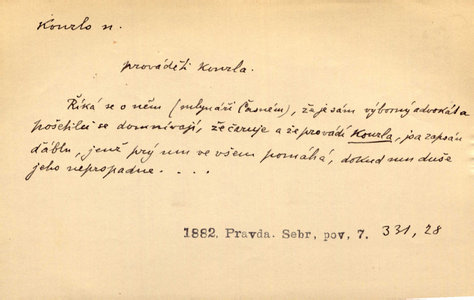 Kouzlo n.
prováděti kouzla.
Říká se o něm (mlynáři Časném), že je sám výborný advokát a
pošetilci se domnívají, že čaruje a že provádí Kouzla, jsa zapsán
ďáblu, jenž prý mu ve všem pomáhá, dokud mu duše
jeho nepropadne. . . .
1882. Pravda. Sebr, pov, 7. 331, 28